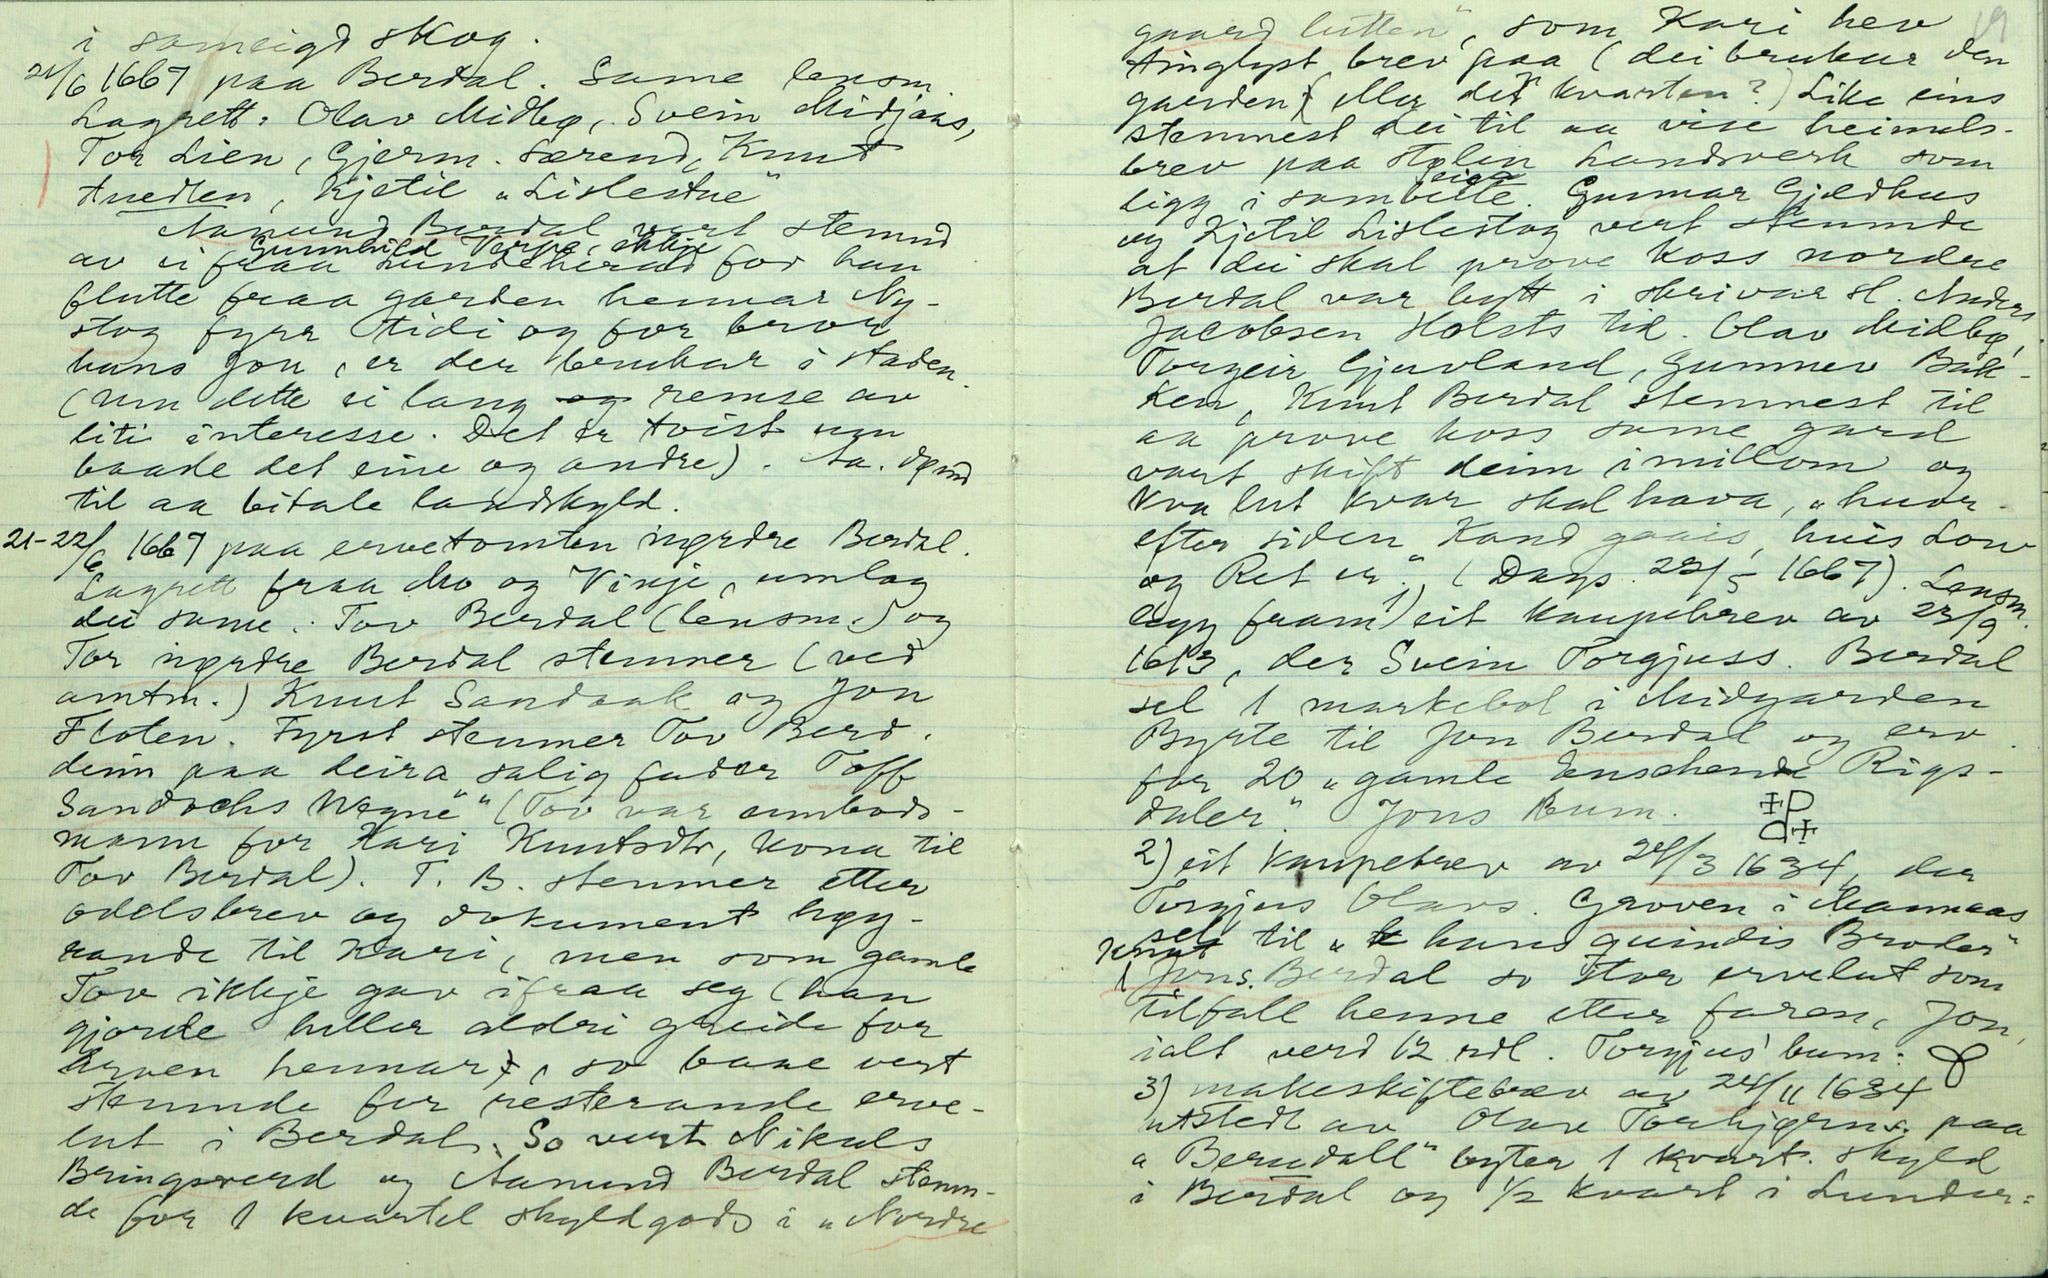 i sameigd skog.
21/6 1667 paa Berdal. Same lensm.
Lagrett: Olav Midbø, Svein Midjaas,
Tor Lien, Gjerm. Særend, Knut
Anedlen, Kjetil „Lislestue"
Aamund Berdal vart stemnd
av ei fraa Lundeherad for han
Gunnhild Verpe, ekkje
flutte fraa garden hennar Ny-
stog fyrr tidi og for bror
hans Jon, er der brukar i staden.
(um dette ei lang remse av
liti interesse. Det er tvist um
baade det eine og andre). Aa. dømd
til aa bitale landskyld.
21-22/6 1667 paa ervetomten nørdre Berdal.
Lagrett fraa Mo og Vinje, umlag
dei same. Tov Berdal (lensm.) og
Tor nørdre Berdal stemner (ved
amtm.) Knut Sandaak og Jon
Floten. Fyrst stemner Tov Berd.
deim paa deira salig fader Toff
Sandochs Wegne" (Tov var umbods-
mann for Kari Knutsdtr, kona til
Tov Berdal). T. B. stemner etter
oddelsbrev og dokument høy-
rande til Kari, men som gamle
Tov ikkje gav ifraa seg (han
gjorde heller aldri greide for
arven hennar), so bae vert
stemnde for resterande erve-
lut i Berdal. So vert Nikuls
Bringsverd og Aamund Berdal stemn-
de for 1 kvartel skyldgods i „Nordre
19
gaard lutten", som Kari hev
tinglyst brev paa (dei brukar den
garden eller det kvarten?) Like eins
stemnest dei til aa vise heimels-
brev paa Stølin Landsverk som
ligg i sambeite. Gunnar Gjeldhus
og Kjetil Lislestog vert stemnde
at dei skal prove koss nordre
Berdal var bytt i skrivar sl. Anders
Jacobsen Holsts tid. Olav Midbø,
Torgeir Gjuvland, Gunnar Bak-
ken, Knut Berdal stemnest til
aa prove koss same gard
vart skift deim imillom og
kva lut kvar skal hava, „huor-
efter siden Kand gaais, huis Low
og Ret er". (Dags. 22/5 1667). Lensm.
legg fram 1) eit kaupebrev av 23/9
1613, der Svein Torgjuss. Berdal
sel 1 markebol i Midgarden
Byrte til Jon Berdal og erv.
for 20 „gamle Enschende Rigs-
daler". Jons bum.
2) eit kaupebrev av 24/3 1634, der
Torgjus Olavs. Groven i Mannaas
sel til „hans quindis Broder"
Knut
Jons. Berdal so stor ervelut som
tilfall henne etter faren, Jon,
ialt verd 12 rdl. Torgjus' bum:
3) makeskiftebrev av 24/11 1634
utstedt av Olav Torbjørns. paa
„Berudall" byter 1 kvart. skyld
i Berdal og 1/2 kvart i Lunder=